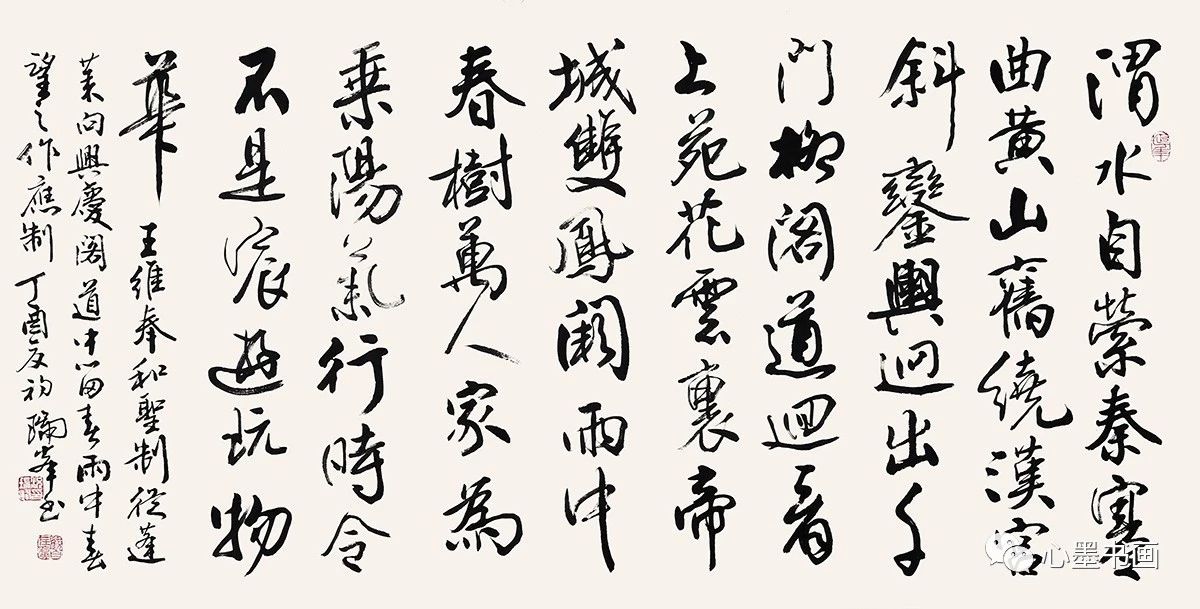 渭水自縈秦塞
曲黄山舊繞漢宫
斜鑾輿迥出千
門柳閣道迴看
上苑花雲裏帝
城雙鳳闕雨中
春樹萬人家為
乘陽氣行時令
不是宸遊玩物
華 王維奉和聖制從蓬
萊向興慶閣道中留春雨中春
望之作應制 丁酉夏初 书
心墨书画